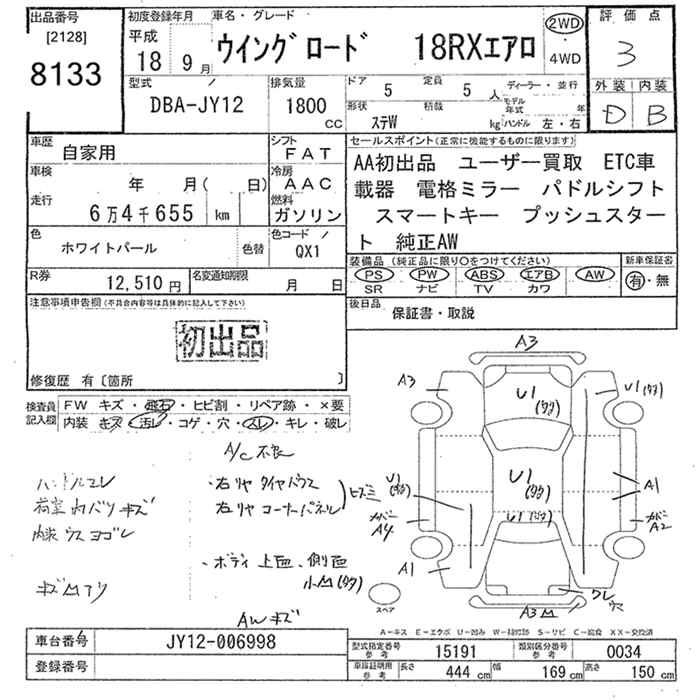 出品番号
[2128]
8133
初度登録年月
平成
18 9月
車名・グレード
ウイングロード 18RXエアロ
2WD
4WD
評価点
3
外装 内装
D B
型式
DBA-JY12
排気量
1800
CC
ドア 5
定員 5 人
形状 ステW
積載 kg
ディーラー・並行
モデル年式 年
ハンドル 左・右
車歴 自家用
シフト FAT
車検 年 月( 日)
冷房 AAC
走行 6万4千655 km
燃料 ガソリン
色 ホワイトパール
色替
色コード QX1
R券 12,510円
名変通知期限 月 日
セールスポイント(正常に機能するものに限ります)
AA初出品 ユーザー買取 ETC車
載器 電格ミラー パドルシフト
スマートキー プッシュスター
ト 純正AW
装備品(純正品に限り○をつけてください)
PS PW ABS エアB AW
SR ナビ TV カワ
新車保証書
有・無
後日品
保証書・取説
注意事項申告欄(不具合内容等は具体的に記入して下さい)
初出品
修復歴 有〔箇所 〕
検査員記入欄
FW キズ・飛石・ヒビ割・リペア跡・×要
内装 キズ・汚レ・コゲ・穴・スレ・キレ・破レ
A/C不良
ハンドルスレ
荷室内バリキズ
内装ウスヨゴレ
・右リヤタイヤハウス
右リヤコーナーパネル
ヒズミ
・ボディ上面、側面
小凹(多)
AWキズ
A3
A3
U1(多)
U1(多)
U1(多)
U1(多)
U1(多)
A1
カバーA4
カバーA2
A1
ワレ
穴
A3凹
スペア
A-キズ E-エクボ U-凹み W-補修跡 S-サビ C-腐食 XX-交換済
車台番号 JY12-006998
登録番号
型式指定番号 参考 15191
類別区分番号 参考 0034
車庫証明用 参考
長さ 444 cm
幅 169 cm
高さ 150 cm